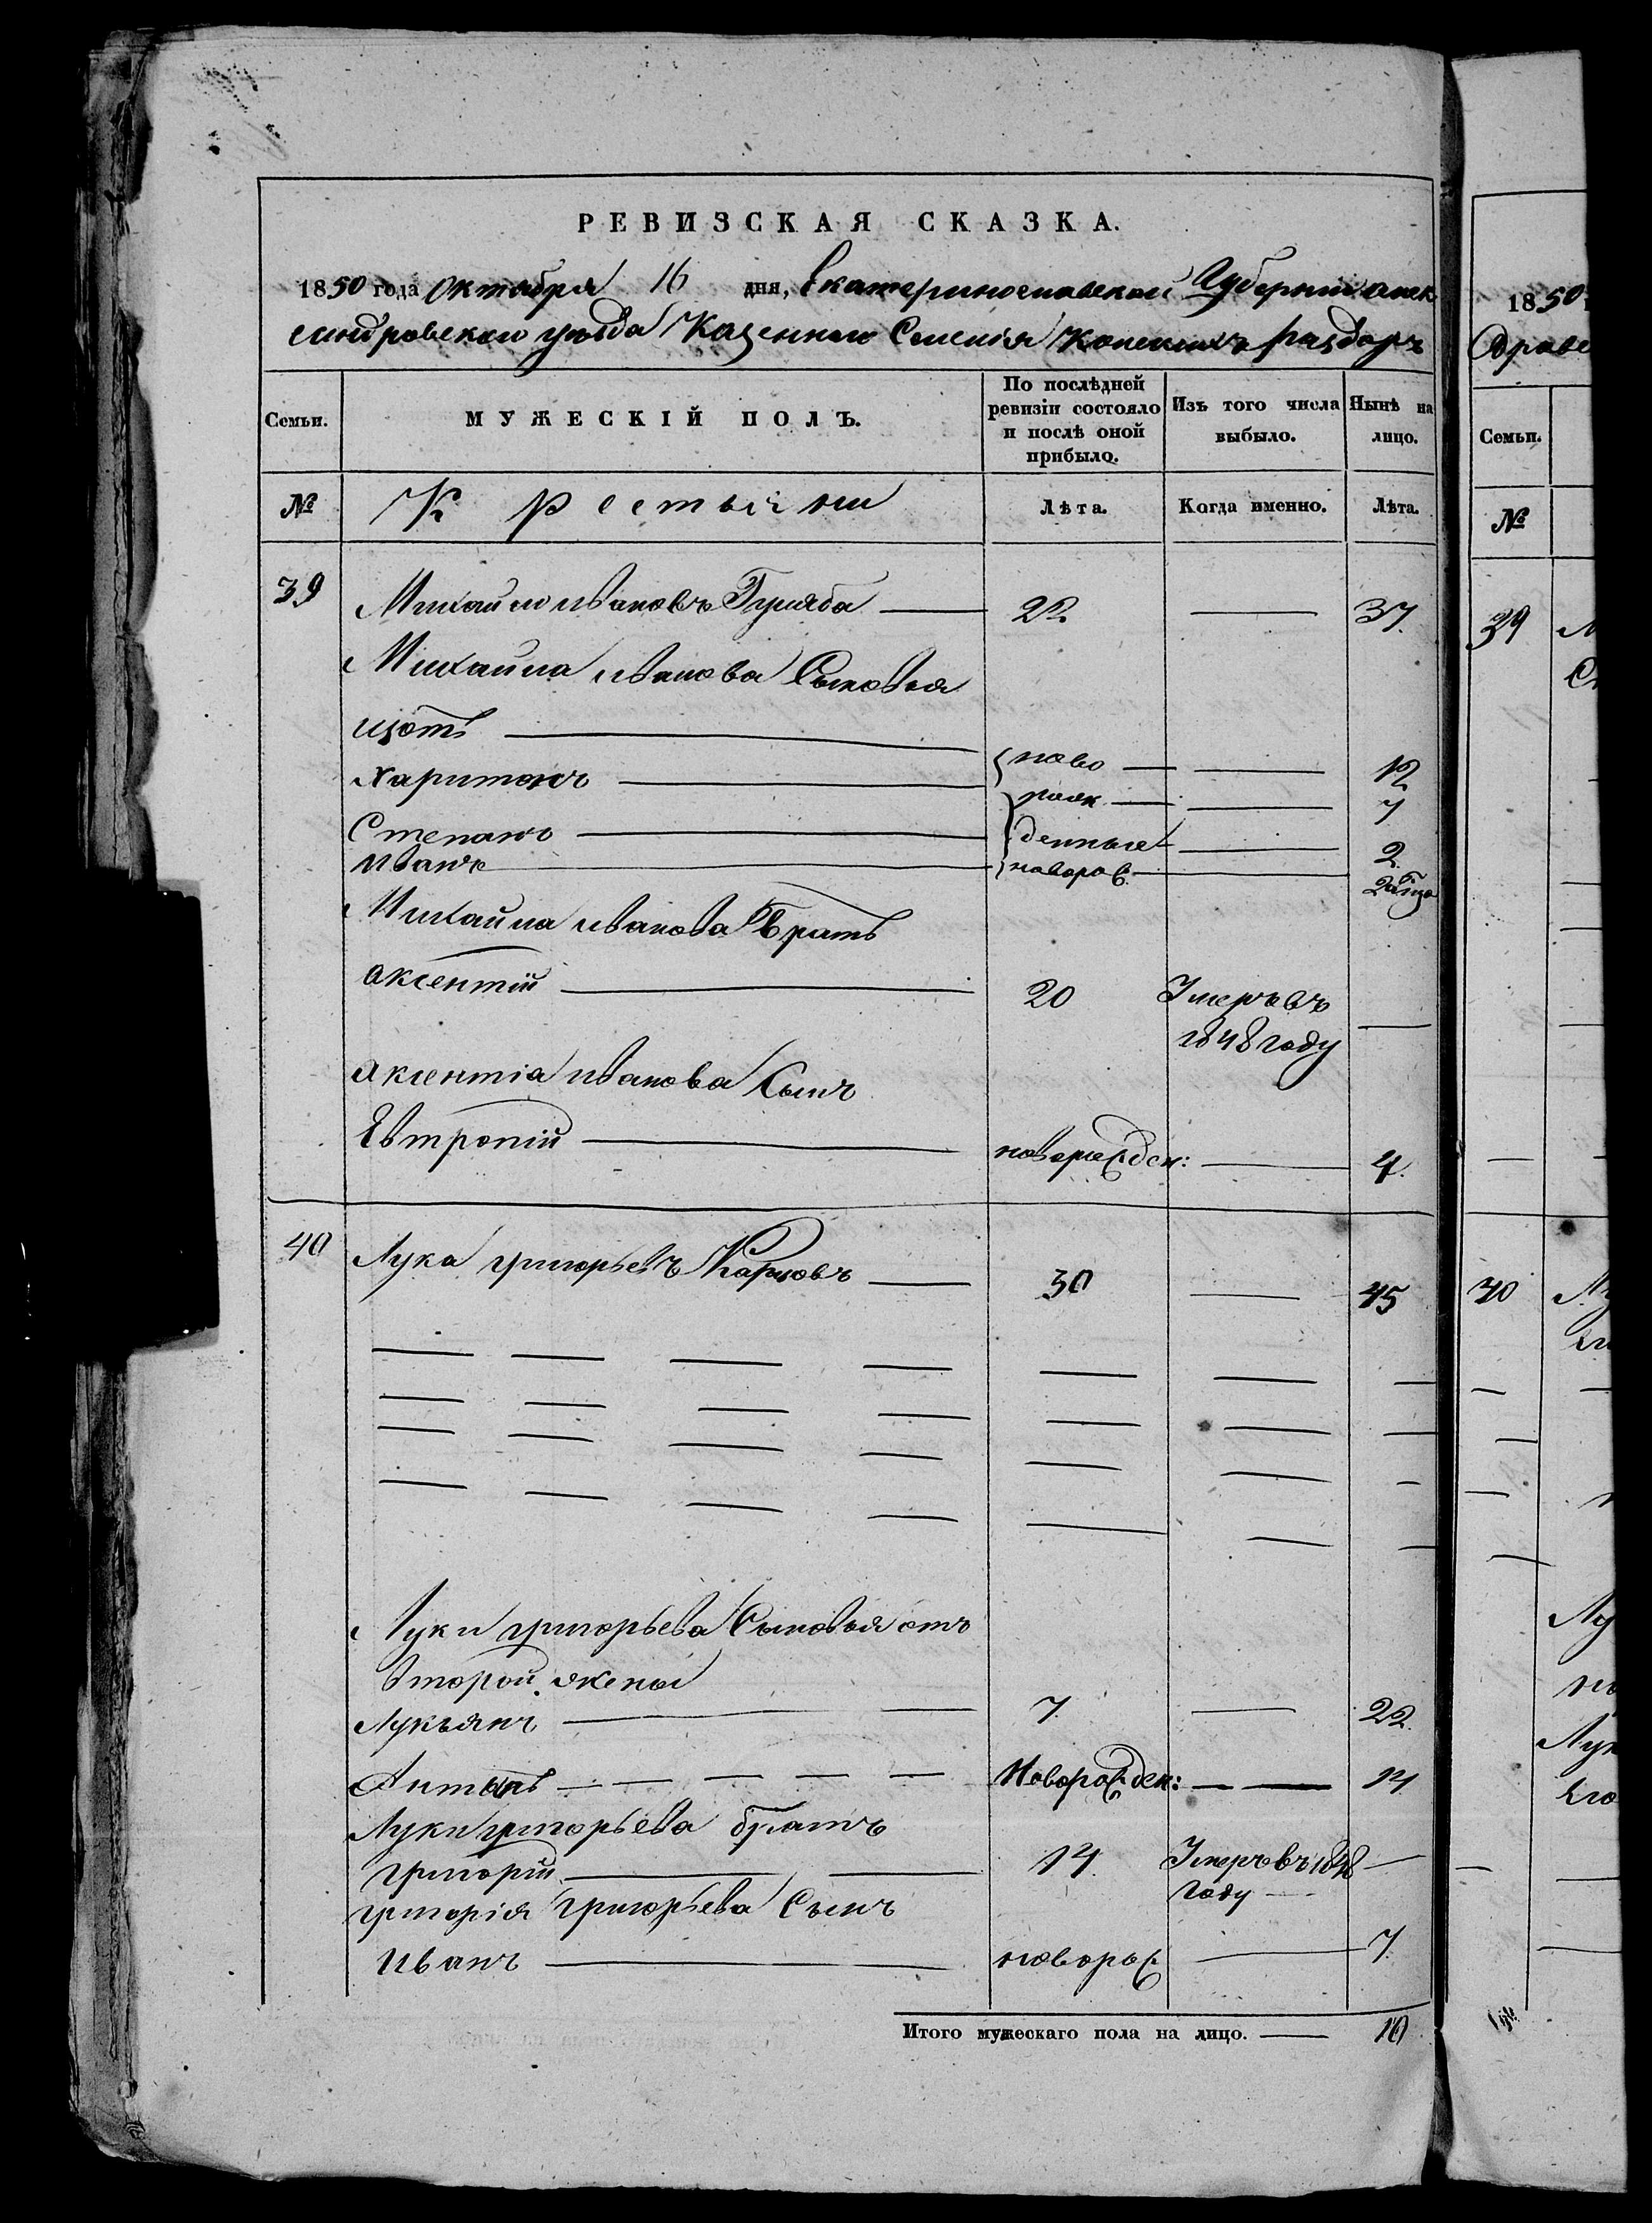 РЕВИЗСКАЯ СКАЗКА.
1850 года Октября 16 дня, Екатеринославской Губернии алек
сандровского уезда Казенного Селения Конских раздор
Семьи. МУЖЕСКІЙ ПОЛЪ. По послѣдней ревизіи состояло и послѣ оной прибыло. Изъ того числа выбыло. Нынѣ на лицо.
№ Крестьяни Лѣта. Когда именно. Лѣта.
39 Михайло ивановъ 22 — 37.
Михайла иванова Сыновья
изотъ — ново — — 12
харитонъ — рож — — 7
Степанъ — денные — 2.
Иванъ — новорож. —
Михайла иванова Братъ
аксентій — 20 Умеръ въ
1848 году —
аксентіа иванова Сынъ
Евтропій — новорожден: — 4.
40 Лука григорьевъ Карповъ — 30 — 45
Луки григорьева Сыновья отъ
второй жены
Лукьянъ — 7. — 22.
Антонъ — Новорожден: — 14
Луки григорьева братъ
григорій — 14. Умеръ въ 1848 —
году —
григорія григорьева Сынъ
Иванъ — новорож — 7.
Итого мужескаго пола на лицо. — 10
1850
Семьи.
№
39
40